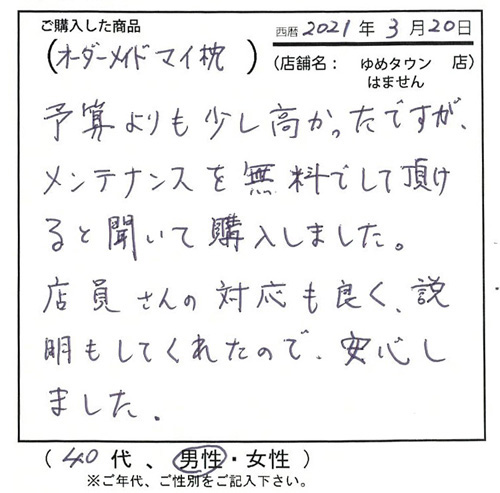 ご購入した商品
西暦 2021年 3月20日
(オーダーメイドマイ枕)
(店舗名: ゆめタウン 店)
はません
予算よりも少し高かったですが、
メンテナンスを無料でして頂け
ると聞いて購入しました。
店員さんの対応も良く、説
明もしてくれたので、安心し
ました.
(40代、男性・女性)
※ご年代、ご性別をご記入下さい。